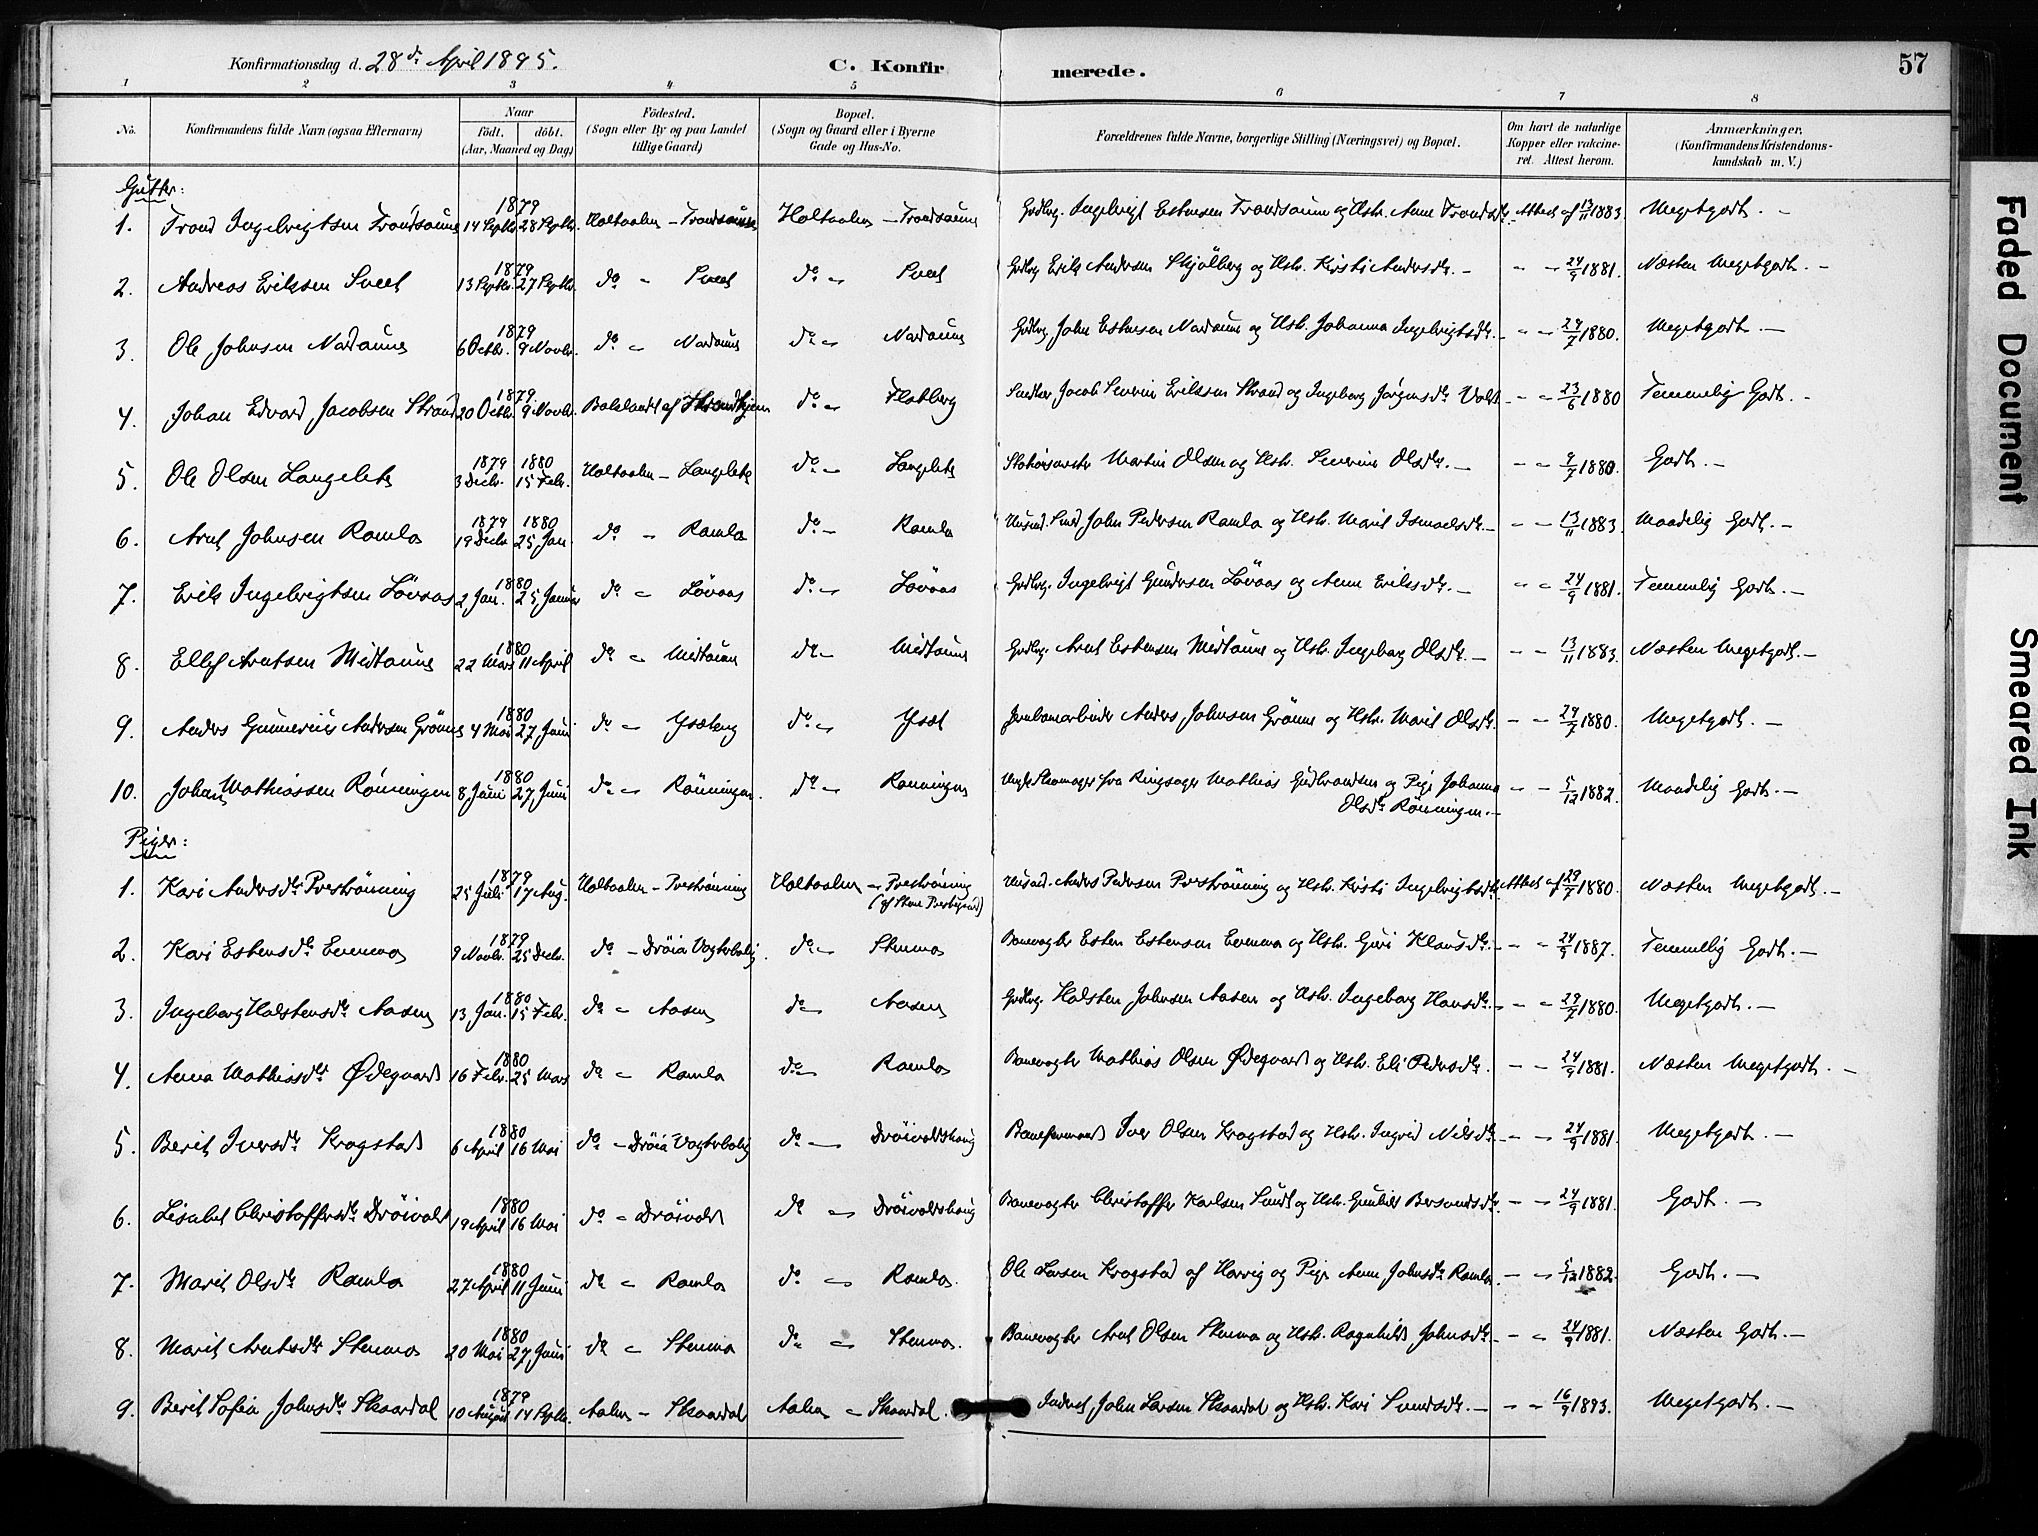 Konfirmationsdag d. 28de April 1895. C. Konfirmerede. 57
1 2 3 4 5 6 7 8
No. Konfirmandens fulde Navn (ogsaa Efternavn) Naar födt. döbt. (Aar, Maaned og Dag) Födested. (Sogn eller By og paa Landet tillige Gaard) Bopæl. (Sogn og Gaard eller i Byerne Gade og Hus-No. Forældrenes fulde Navne, borgerlige Stilling (Næringsvei) og Bopæl. Om havt de naturlige Kopper eller vakcineret. Attest herom. Anmærkninger, (Konfirmandens Kristendomskundskab m. V.)
Gutter:
1. Trond Ingebrigtsen Trondsaune 1879 14 Septbr. 28 Septbr. Holtaalen - Trondsaune Holtaalen - Trondsaune Gdbrg. Ingebrigt Estensen Trondsaune og Hstr. Anne Trondsdtr. Attest af 13/11 1883. Megetgodt. -
2. Andreas Eriksen Svect 1879 13 Septbr. 27 Septbr. do - Svect do - Svect Gdbrg. Erik Andersen Skjölberg og Hstr. Kirsti Andersdtr. - - - 24/9 1881. Næsten Megetgodt. -
3. Ole Johnsen Nordaune 1879 6 Octbr. 9 Novbr. do - Nordaune do - Nordaune Gdbrg. John Estensen Nordaune og Hstr. Johanna Ingebrigtsdtr. - - 29/7 1880. Megetgodt. -
4. Johan Edvard Jacobsen Strand 1879. 20 Octbr. 9 Novbr. Bakelandet af Throndhjem do - Flatberg Snedker Jacob Severin Eriksen Strand og Ingeborg Jörgensdtr. - - 23/6 1880 Temmelig Godt. -
5. Ole Olsen Langelete 1879 3 Decbr. 1880 15 Febr. Holtaalen - Langlete do - Langlete Martin Olsen og Hstr. Severine Olsdtr. - - - 9/7 1880. Godt. -
6. Arnt Johnsen Ramlo 1879 19 Decbr. 1880 25 Jan. do - Ramlo do - Ramlo Husmd. Smed John Pedersen Ramlo og Hstr. Marit Ismaelsdtr. - - - 13/11 1883. Maadelig Godt. -
7. Erik Ingebrigtsen Lövaas 1880 2 Jan. 25 Januar do - Lövaas do - Lövaas Gdbrg. Ingebrigt Gundersen Lövaas og Anne Eriksdtr. - - - 24/9 1881. Temmelig Godt. -
8. Ellef Arntsen Midtaune 1880 22 Mars 11 April do - Midtaune do - Midtaune Gdbrg. Arnt Estensen Midtaune og Hstr. Ingeborg Olsdtr. - - - 13/11 1883. Næsten Megetgodt. -
9. Anders Gunnerius Andersen Grönnes 1880 4 Mai 27 Juni do - Ysæteng do - Ysæt Jernbanearbeider Anders Johnsen Grönnes og Hstr. Marit Olsdtr. - - 29/7 1880. Megetgodt. -
10. Johan Mathiassen Rönningen 1880 8 Juni 27 Juni do - Rönningen. do - Rönningen Ungk. Skomager fra Ringsager Mathias Gudbrandsen og Pige Johanna Olsdtr. Rönningen. - - - 5/12 1882. Maadelig Godt. -
Piger:
1. Kari Andersdtr. Preströnning 1879 25 Juli 17 Aug. Holtaalen - Preströnning Holtaalen - Preströnning Husmd. Anders Pedersen Preströnning og Hstr. Kirsti Ingebrigtsdtr. Attest af 29/7 1880. Næsten Megetgodt. -
2. Kari Estensdtr. Evenmo 1879 9 Novbr. 25 Decbr. do - Dröia Vogterbolig. do - Stenmo Banevogter Esten Estensen Evenmo og Hstr. Guri Klausdtr. - - 24/9 1887. Temmelig Godt. -
3. Ingeborg Halstensdtr. Aasen 1880 13 Jan. 15 Febr. do - Aasen do - Aasen Gdbrg. Halsten Johnsen Aasen og Hstr. Ingeborg Hansdtr. - - 29/7 1880. Megetgodt. -
4. Anna Mathiasdtr Ødegaard 1880 16 Febr. 25 Mars do - Ramlo do - Ramlo Banevogter Mathias Olsen Ødegaard og Hstr. Eli Pedersdtr. - - 24/9 1881. Næsten Megetgodt. -
5. Berit Iversdtr. Krogstad 1880 6 April 16 Mai do - Dröia Vogterbolig do - Dröivoldshaug Baneformand Iver Olsen Krogstad og Hstr. Ingrid Nilsdtr. - - 24/9 1881. Megetgodt. -
6. Lisabet Christoffersdtr. Dröivold 1880 19 April 16 Mai do - Dröivold do - Dröivoldshaug Banevogter Christoffer Karlsen Sundt og Hstr. Gunhild Bersvendsdtr. - - 24/9 1881. Godt. -
7. Marit Olsdtr. Ramlo 1880 27 April 11 Juni do - Ramlo do - Ramlo. Ole Larsen Krogstad af Horrig og Pige Anne Johnsdtr. Ramlo. - - 5/12 1882. Godt. -
8. Marit Arntsdtr Stenmo 1880 20 Mai 27 Juni do - Stenmo do - Stenmo. Banevogter Arnt Olsen Stenmo og Hstr. Ragnhild Johnsdtr. - - 24/9 1881. Næsten Godt. -
9. Berit Sofia Johnsdtr. Skaardal 1879 10 August 14 Septbr. Aalen - Skaardal Aalen - Skaardal. Inderst John Larsen Skaardal og Hstr. Kari Svendsdtr. - - - 16/9 1893. Megetgodt. -
Faded Document
Smeared Ink